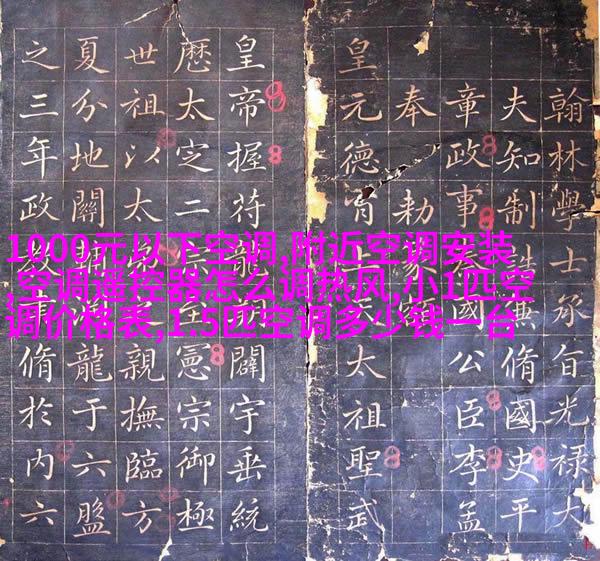 1000元以下空调,附近空调安装
,空调遥控器怎么调热风,小1匹空
调价格表,1.5匹空调多少钱一台
翰林學士承旨光祿大
夫知制誥兼脩國史平
章政事秦國公臣李孟
奉
勅
皇元德冑太祖聖武
皇帝握符龍闢宇垂統
厯太定二宗憲宗御極
世祖以太親撫臨方
夏分地關龍于六盤
之三年政教脩於内六